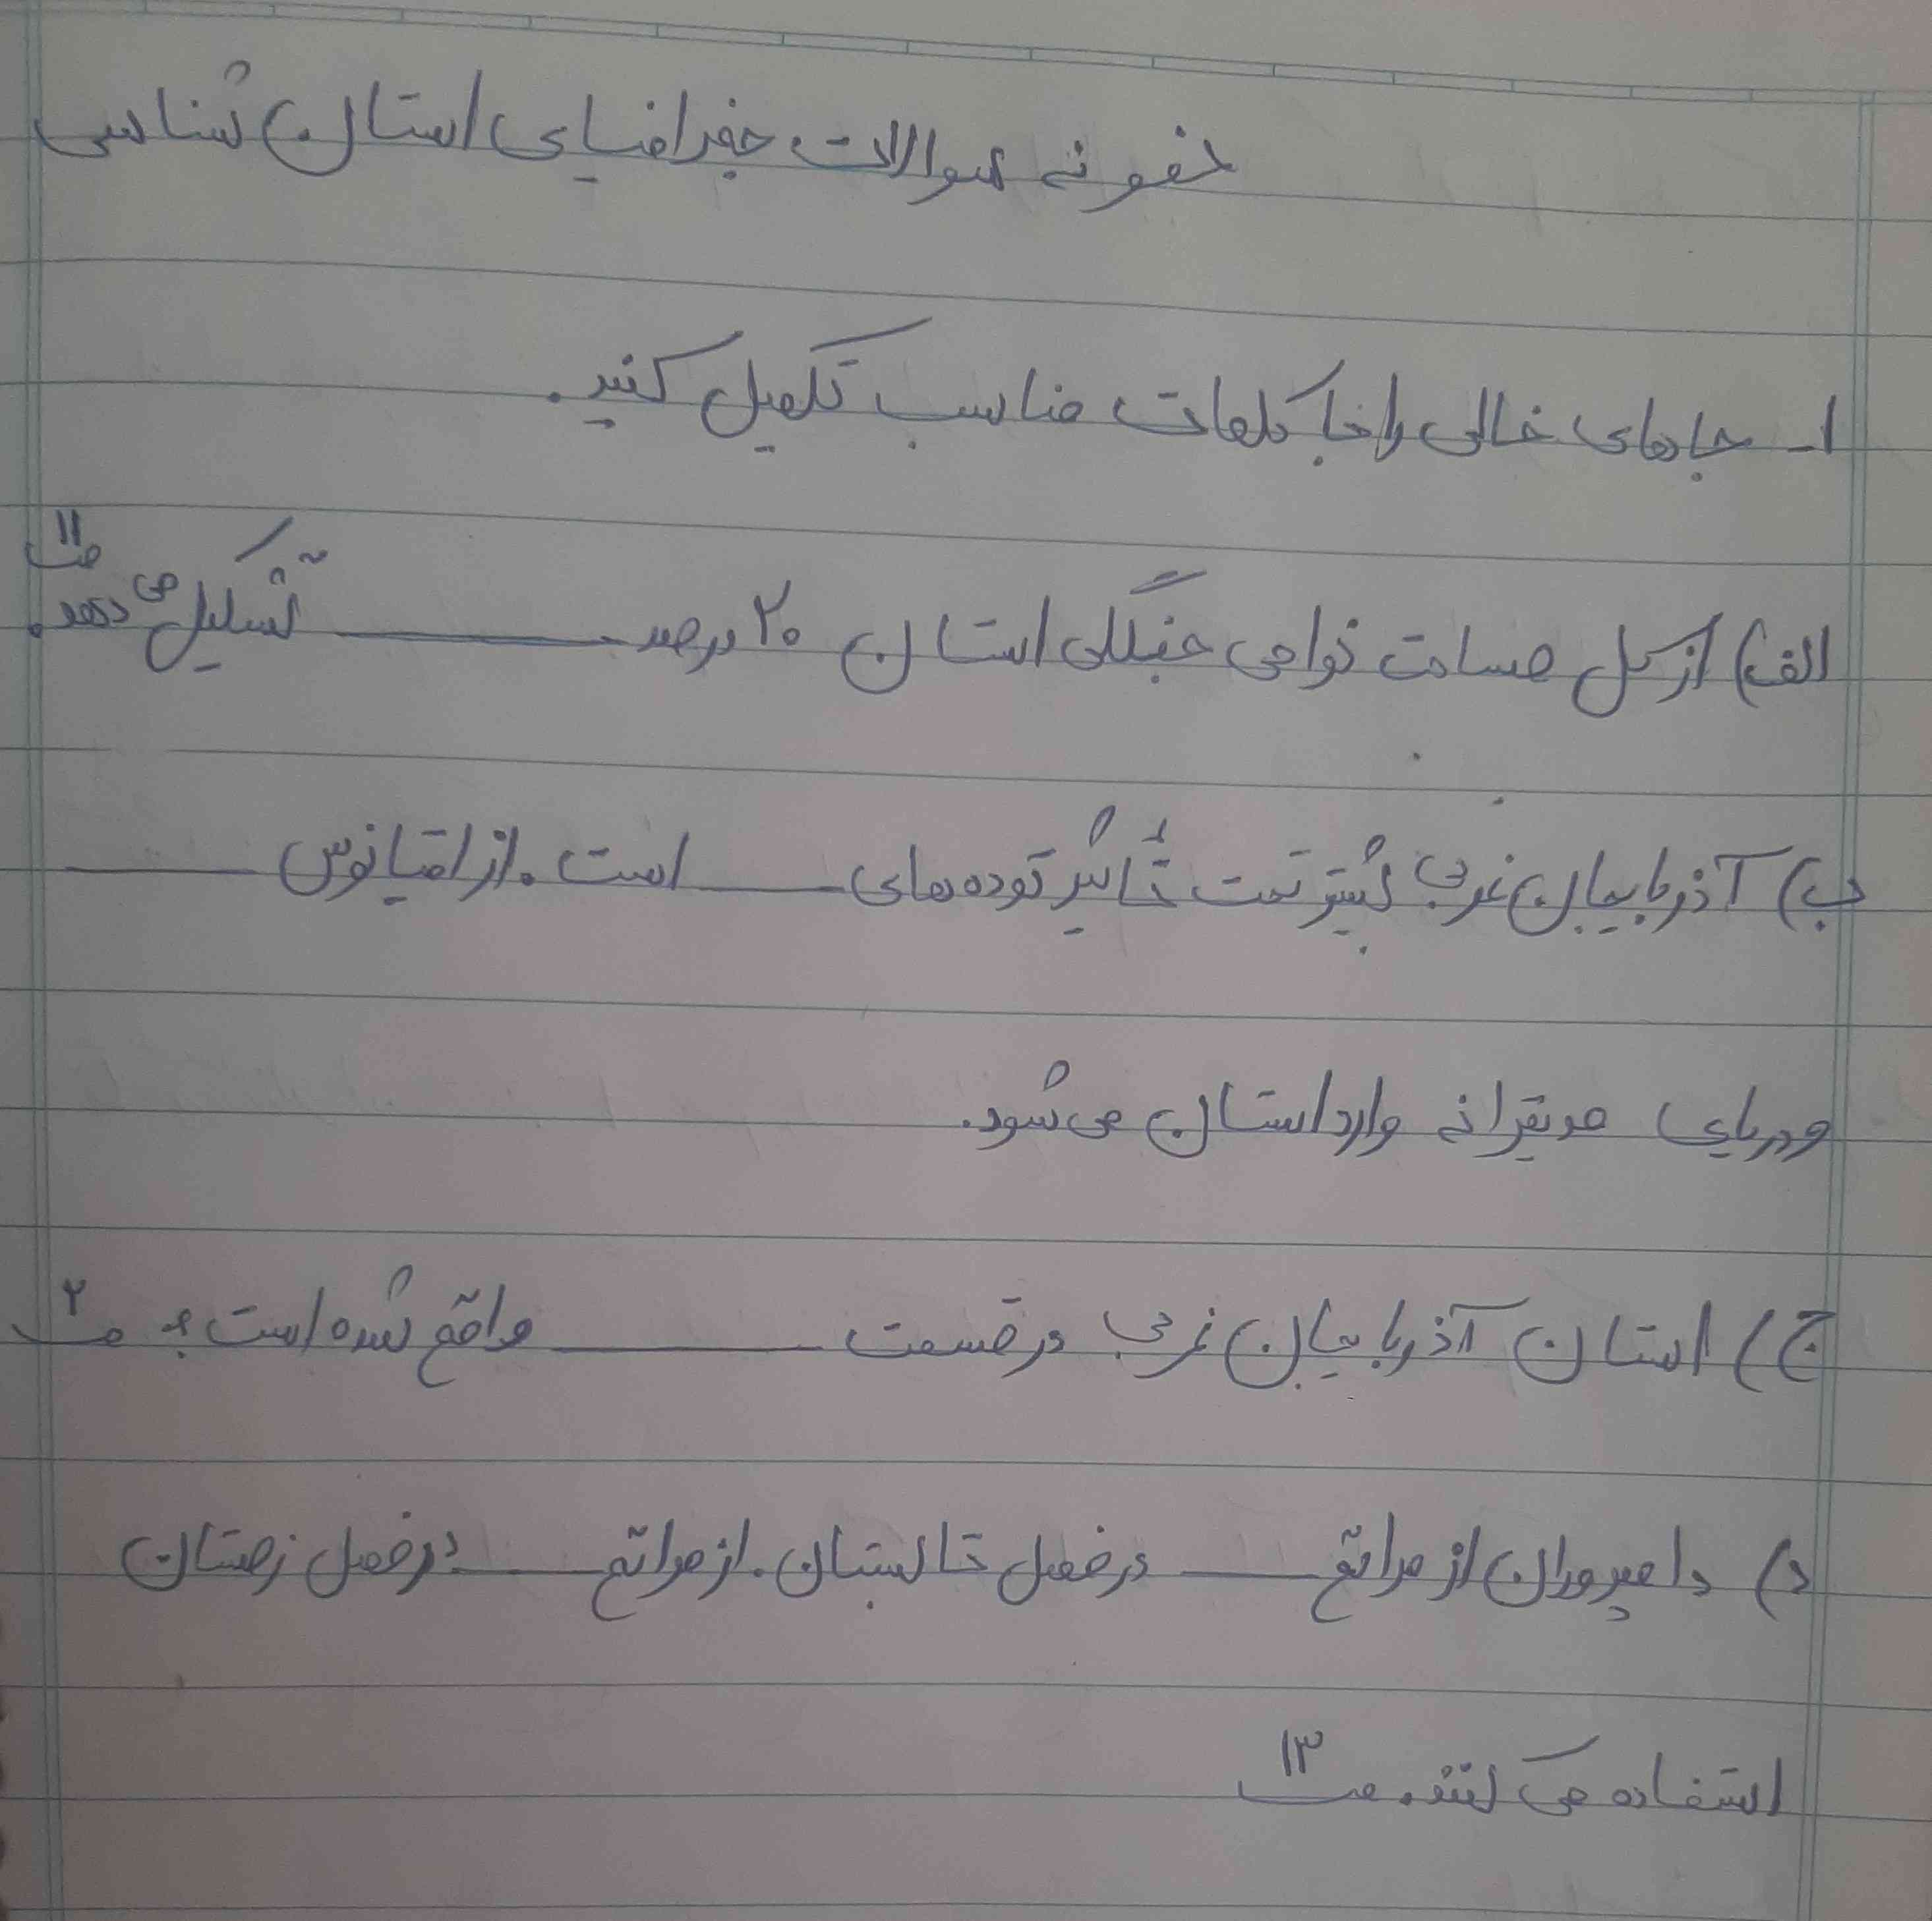 نمونه سوالات جغرافیای استان شناسی
۱- جاهای خالی را با کلمات مناسب تکمیل کنید.
الف) از کل مساحت نواحی جنگلی استان ۲۰ درصد ______ تشکیل می دهد. ص۱۱
ب) آذربایجان غربی بیشتر تحت تأثیر توده های ______ است. از اقیانوس ______
و دریای مدیترانه وارد استان می شود.
ج) استان آذربایجان غربی در قسمت ______ واقع شده است؟ ص۲
د) دامپروران از مراتع ______ در فصل تابستان. از مراتع ______ در فصل زمستان
استفاده می کنند. ص۱۳